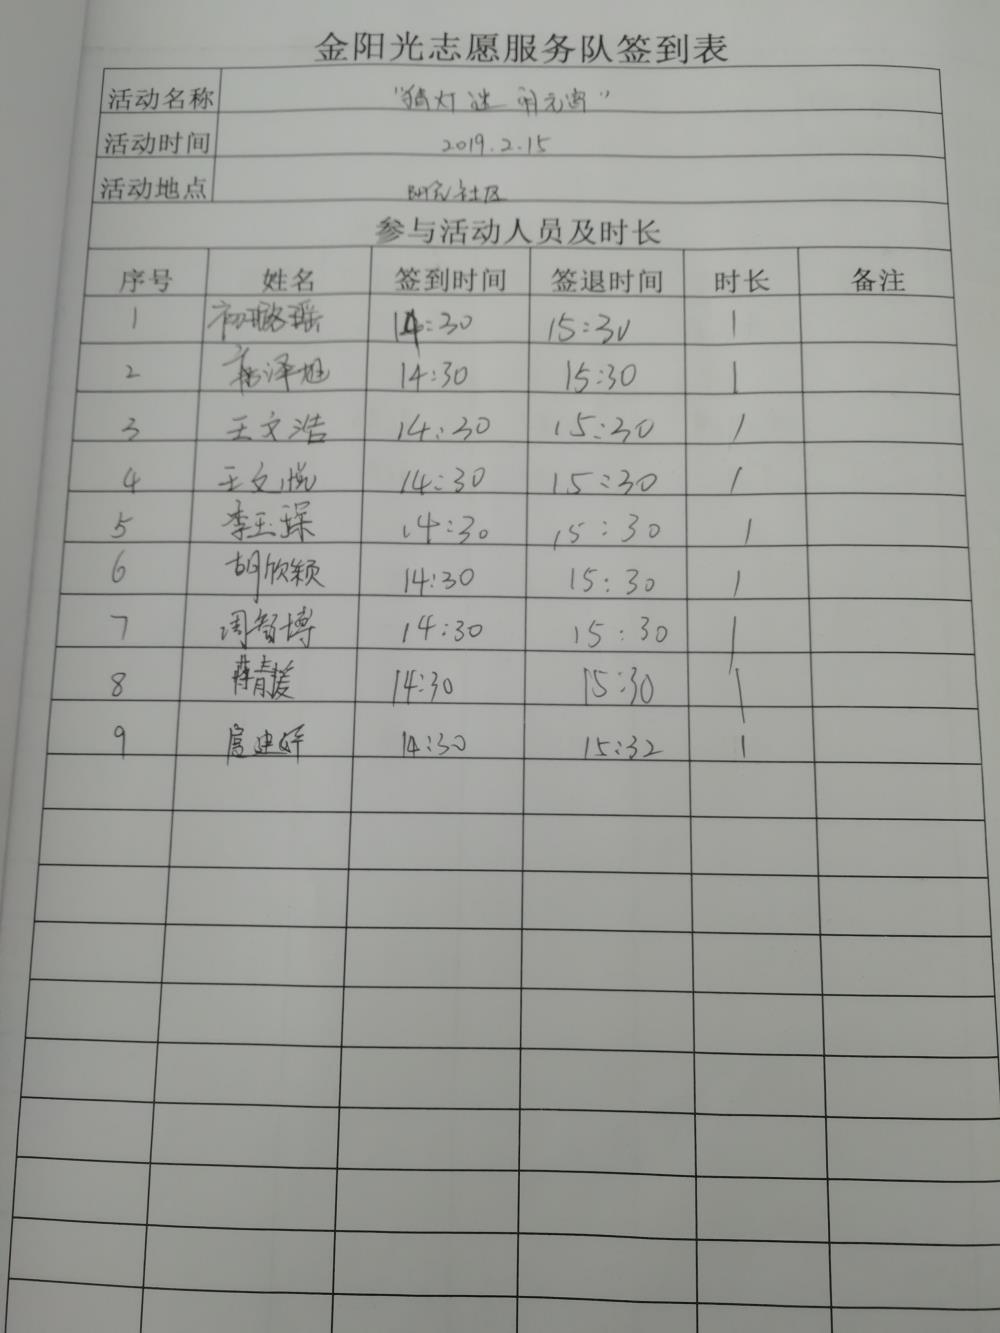 金阳光志愿服务队签到表
活动名称 "猜灯谜 闹元宵"
活动时间 2019.2.15
活动地点 社区
参与活动人员及时长
序号 姓名 签到时间 签退时间 时长 备注
1 初璐瑶 14:30 15:30 1
2 泽旭 14:30 15:30 1
3 王文浩 14:30 15:30 1
4 王文悦 14:30 15:30 1
5 李玉琛 14:30 15:30 1
6 胡欣颖 14:30 15:30 1
7 周智博 14:30 15:30 1
8 14:30 15:30 1
9 14:30 15:32 1